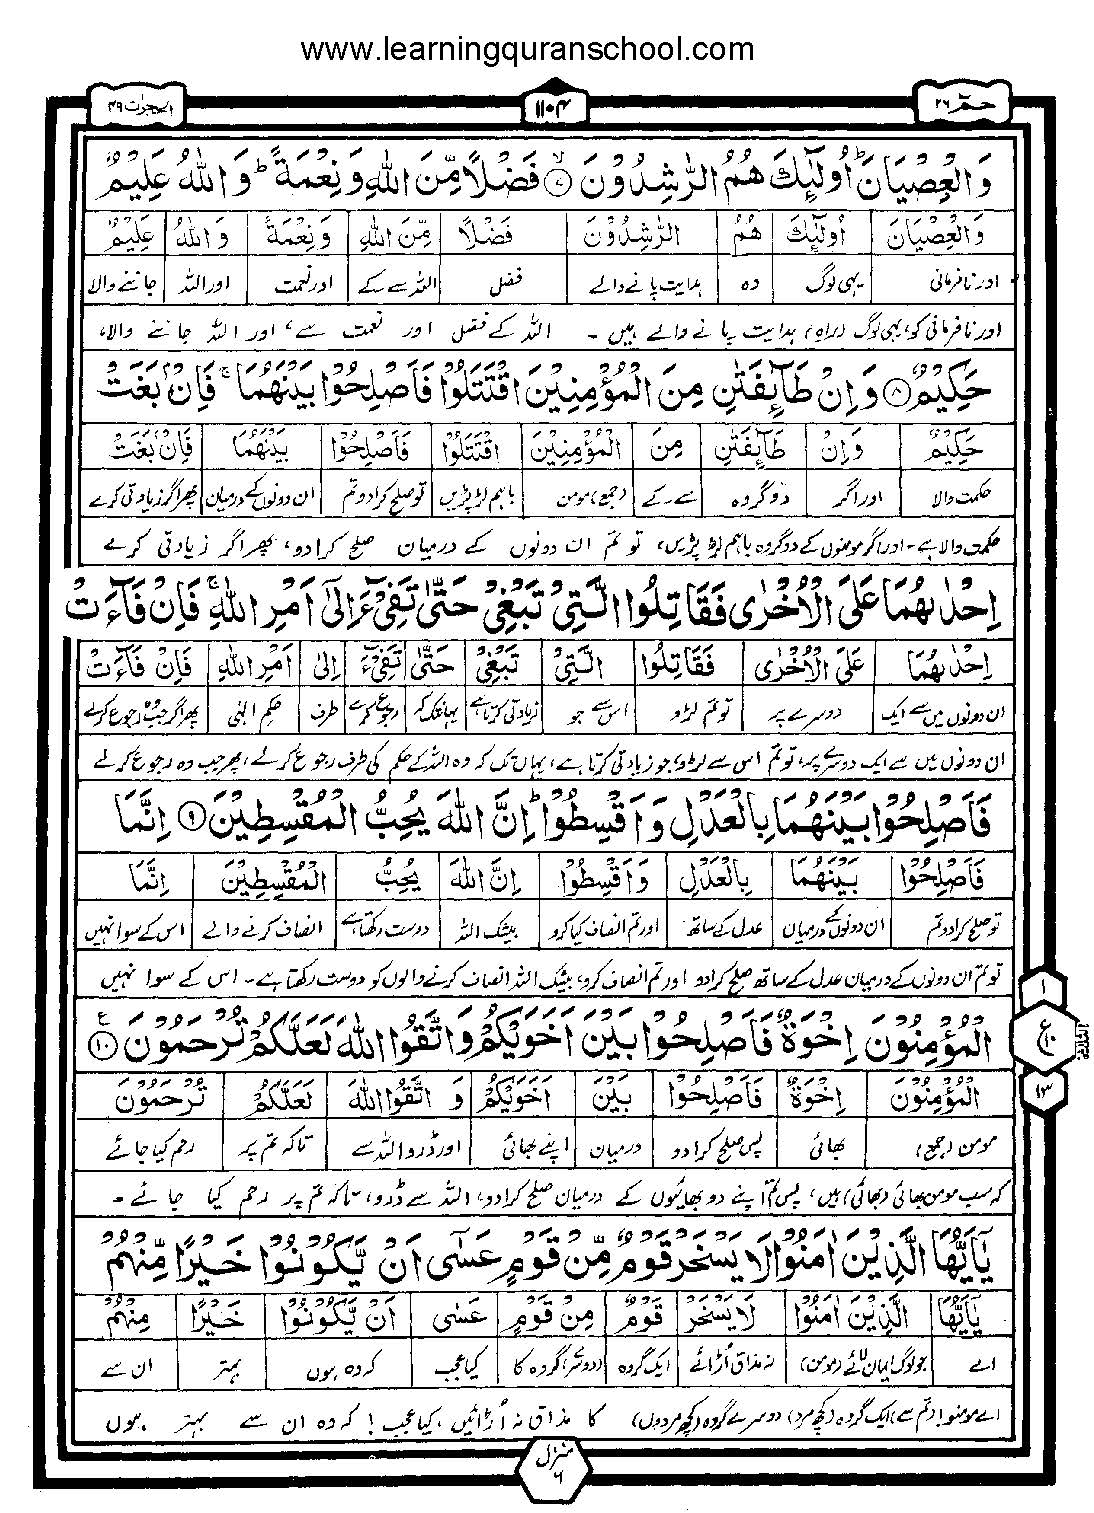 www.learningquranschool.com
حٰمٓ ۲۶
۱۱۰۴
الحجرات ۴۹
وَالْعِصْيَانَ ؕ اُولٰٓئِكَ هُمُ الرّٰشِدُوْنَ ۙ﴿۷﴾ فَضْلًا مِّنَ اللّٰهِ وَنِعْمَةً ؕ وَاللّٰهُ عَلِيْمٌ
وَالْعِصْيَانَ اُولٰٓئِكَ هُمُ الرّٰشِدُوْنَ فَضْلًا مِّنَ اللّٰهِ وَنِعْمَةً وَاللّٰهُ عَلِيْمٌ
اور نافرمانی یہی لوگ وہ ہدایت پانے والے فضل اللہ سے کے اور نعمت اور اللہ جاننے والا
اور نافرمانی کو، یہی لوگ (راہِ) ہدایت پانے والے ہیں۔ اللہ کے فضل اور نعمت سے، اور اللہ جاننے والا،
حَكِيْمٌ ﴿۸﴾ وَاِنْ طَآئِفَتٰنِ مِنَ الْمُؤْمِنِيْنَ اقْتَتَلُوْا فَاَصْلِحُوْا بَيْنَهُمَا ۚ فَاِنْۢ بَغَتْ
حَكِيْمٌ وَاِنْ طَآئِفَتٰنِ مِنَ الْمُؤْمِنِيْنَ اقْتَتَلُوْا فَاَصْلِحُوْا بَيْنَهُمَا فَاِنْۢ بَغَتْ
حکمت والا اور اگر دو گروہ سے ۔ کے (جمع) مومن باہم لڑ پڑیں تو صلح کرا دو تم ان دونوں کے درمیان پھر اگر زیادتی کرے
حکمت والا ہے۔ اور اگر مومنوں کے دو گروہ باہم لڑ پڑیں، تو تم ان دونوں کے درمیان صلح کرا دو، پھر اگر زیادتی کرے
اِحْدٰىهُمَا عَلَى الْاُخْرٰى فَقَاتِلُوا الَّتِيْ تَبْغِيْ حَتّٰى تَفِيْٓءَ اِلٰٓى اَمْرِ اللّٰهِ ۚ فَاِنْ فَآءَتْ
اِحْدٰىهُمَا عَلَى الْاُخْرٰى فَقَاتِلُوا الَّتِيْ تَبْغِيْ حَتّٰى تَفِيْٓءَ اِلٰٓى اَمْرِ اللّٰهِ فَاِنْ فَآءَتْ
ان دونوں میں سے ایک دوسرے پر تو تم لڑو اس سے جو زیادتی کرتا ہے یہانتک کہ رجوع کرے طرف حکمِ الٰہی پھر اگر جب وہ رجوع کرلے
ان دونوں میں سے ایک دوسرے پر، تو تم اس سے لڑو جو زیادتی کرتا ہے، یہاں تک کہ وہ اللہ کے حکم کی طرف رجوع کرلے، پھر جب وہ رجوع کرلے
فَاَصْلِحُوْا بَيْنَهُمَا بِالْعَدْلِ وَاَقْسِطُوْا ؕ اِنَّ اللّٰهَ يُحِبُّ الْمُقْسِطِيْنَ ﴿۹﴾ اِنَّمَا
فَاَصْلِحُوْا بَيْنَهُمَا بِالْعَدْلِ وَاَقْسِطُوْا اِنَّ اللّٰهَ يُحِبُّ الْمُقْسِطِيْنَ اِنَّمَا
تو صلح کرا دو تم ان دونوں کے درمیان عدل کے ساتھ اور تم انصاف کیا کرو بیشک اللہ دوست رکھتا ہے انصاف کرنے والے اس کے سوا نہیں
تو تم ان دونوں کے درمیان عدل کے ساتھ صلح کرا دو اور تم انصاف کرو، بیشک اللہ انصاف کرنے والوں کو دوست رکھتا ہے۔ اس کے سوا نہیں
الْمُؤْمِنُوْنَ اِخْوَةٌ فَاَصْلِحُوْا بَيْنَ اَخَوَيْكُمْ وَاتَّقُوا اللّٰهَ لَعَلَّكُمْ تُرْحَمُوْنَ ﴿۱۰﴾ ع
۱
ع ۱۰
۱۳
الْمُؤْمِنُوْنَ اِخْوَةٌ فَاَصْلِحُوْا بَيْنَ اَخَوَيْكُمْ وَاتَّقُوا اللّٰهَ لَعَلَّكُمْ تُرْحَمُوْنَ
مومن (جمع) بھائی پس صلح کرا دو درمیان اپنے بھائی اور ڈرو اللہ سے تاکہ تم پر رحم کیا جائے
کہ سب مومن بھائی (بھائی) ہیں، پس تم اپنے دو بھائیوں کے درمیان صلح کرا دو، اللہ سے ڈرو، تاکہ تم پر رحم کیا جائے۔
يٰٓاَيُّهَا الَّذِيْنَ اٰمَنُوْا لَا يَسْخَرْ قَوْمٌ مِّنْ قَوْمٍ عَسٰٓى اَنْ يَّكُوْنُوْا خَيْرًا مِّنْهُمْ
يٰٓاَيُّهَا الَّذِيْنَ اٰمَنُوْا لَا يَسْخَرْ قَوْمٌ مِّنْ قَوْمٍ عَسٰٓى اَنْ يَّكُوْنُوْا خَيْرًا مِّنْهُمْ
اے جو لوگ ایمان لائے (مومن) نہ مذاق اُڑائے ایک گروہ (دوسرے) گروہ کا کیا عجب کہ وہ ہوں بہتر ان سے
اے مومنو! (تم سے) ایک گروہ (کچھ مرد) دوسرے گروہ (کچھ مردوں) کا مذاق نہ اُڑائیں، کیا عجب! کہ وہ ان سے بہتر ہوں
منزل ۶